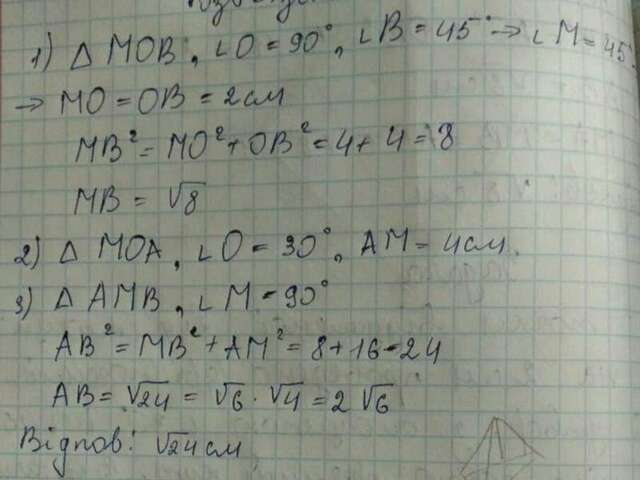 1) △ MOB, ∟O = 90°, ∟B = 45° → ∟M = 45°
→ MO = OB = 2 см
MB² = MO² + OB² = 4 + 4 = 8
MB = √8
2) △ MOA, ∟O = 30°, AM = 4 см.
3) △ AMB, ∟M = 90°
AB² = MB² + AM² = 8 + 16 = 24
AB = √24 = √6 · √4 = 2√6
Відпов: √24 см